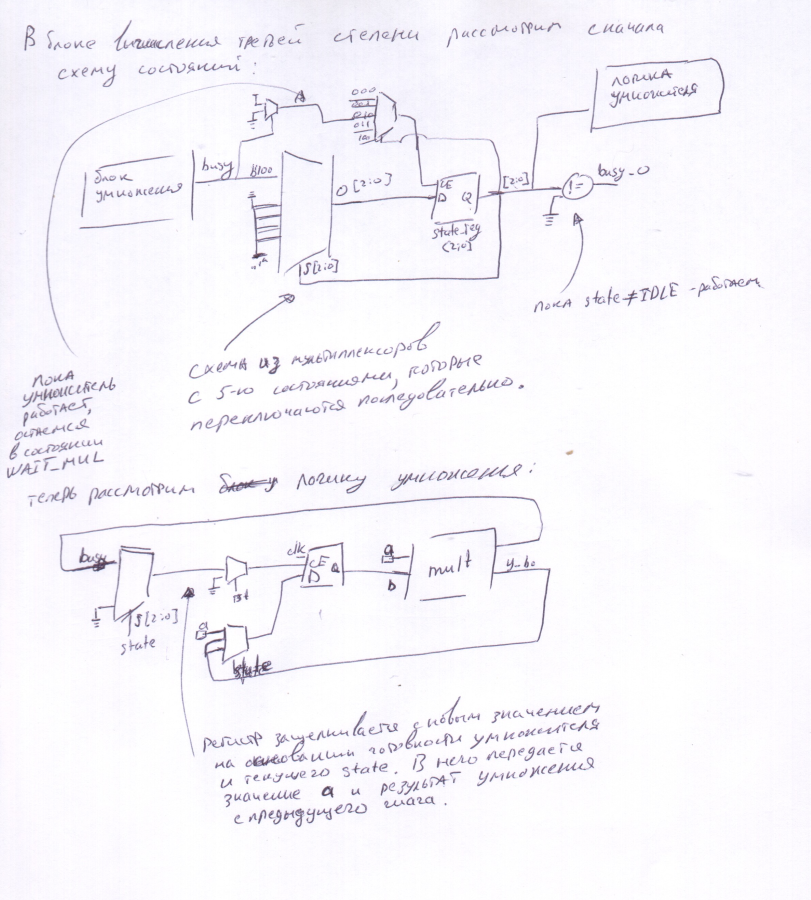 В блоке вычисления третьей степени рассмотрим сначала
схему состояний:
ЛОГИКА
умножителя
000
001
010
011
100
1
A
блок
умножения
busy
O [2:0]
S[2:0]
CE
D Q
state_reg
[2:0]
[2:0]
!=
busy_o
пока state≠IDLE - работаем
схема из мультиплексоров
с 5-ю состояниями, которые
переключаются последовательно.
пока
умножитель
работает,
остаемся
в состоянии
WAIT_MUL
теперь рассмотрим логику умножения:
busy
S[2:0]
state
rst
clk
CE
D Q
a
b
mult
y_bo
a
state
регистр защелкивается с новым значением
на основании готовности умножителя
и текущего state. В него передается
значение a и результат умножения
с предыдущего шага.